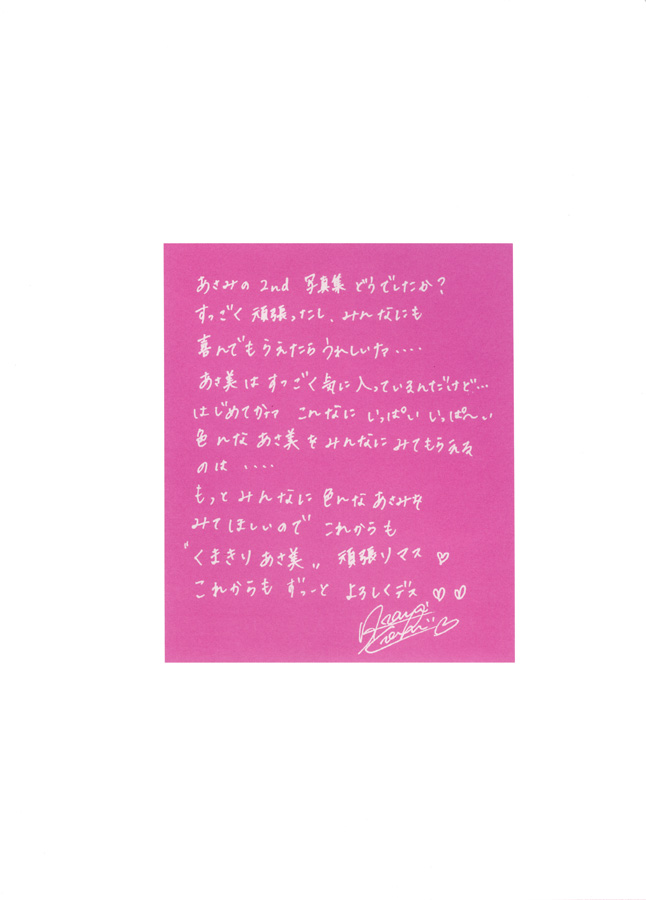 あさみの 2nd 写真集 どうでしたか?
すっごく 頑張ったし、みんなにも
喜んでもらえたら うれしいナ・・・・
あさ美は すっごく気に入っているんだけど…
はじめてかナ? こんなに いっぱい いっぱ〜い
色んな あさ美を みんなに みてもらえる
のは ・・・・
もっと みんなに 色んな あさみを
みてほしいので これからも
〝くまきり あさ美〟 頑張リマス ♡
これからも ずっーと よろしくデス ♡ ♡